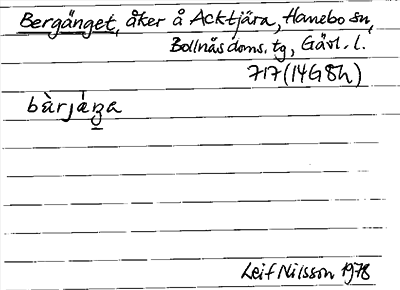 Bergänget, åker å Acktjära, Hanebo sn,
Bollnäs doms. tg, Gävl. l.
717 (14G8h)
bàrjäŋa
Leif Nilsson 1978